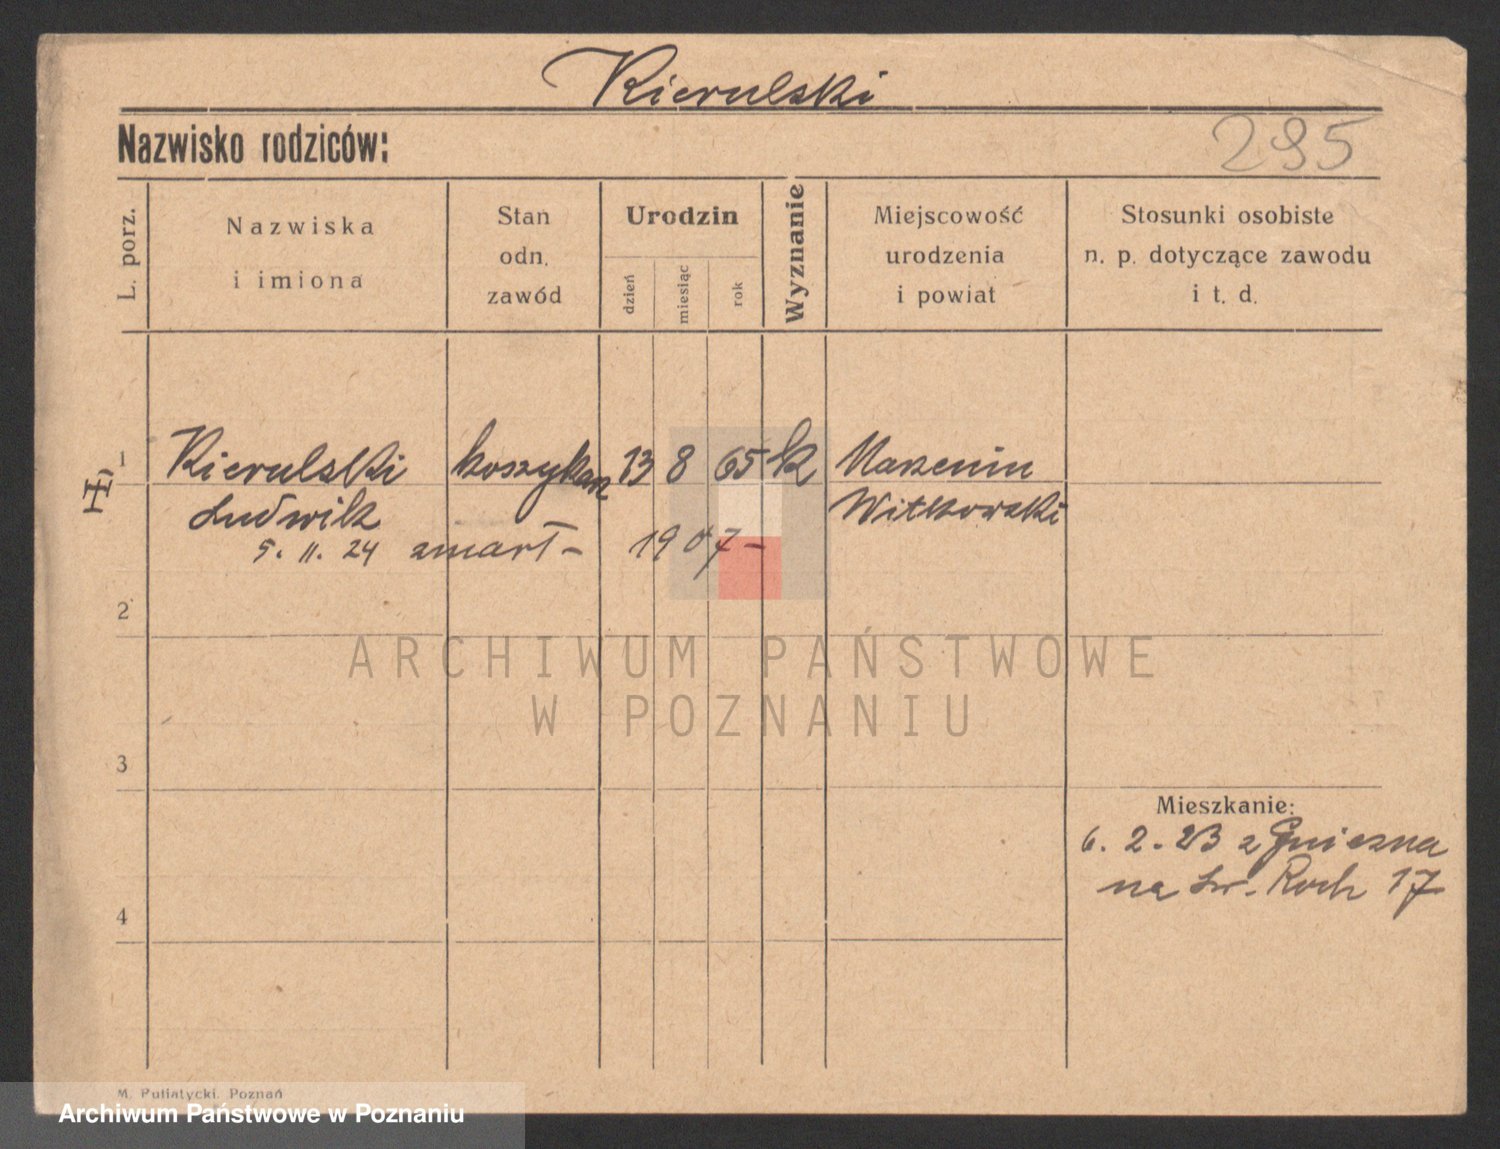 Kierulski
Nazwisko rodziców:
295
L. porz.
Nazwiska
i imiona
Stan
odn.
zawód
Urodzin
dzień
miesiąc
rok
Wyznanie
Miejscowość
urodzenia
i powiat
Stosunki osobiste
n. p. dotyczące zawodu
i t. d.
1 Kierulski koszykarz 13 8 65 k Marzenin
Ludwik Witkowski
5. 11. 24 zmarł – 1907 –
2
ARCHIWUM PAŃSTWOWE
W POZNANIU
3
Mieszkanie:
6. 2. 23 z Gniezna
na św. Roch 17
4
M. Putiatycki, Poznań
Archiwum Państwowe w Poznaniu